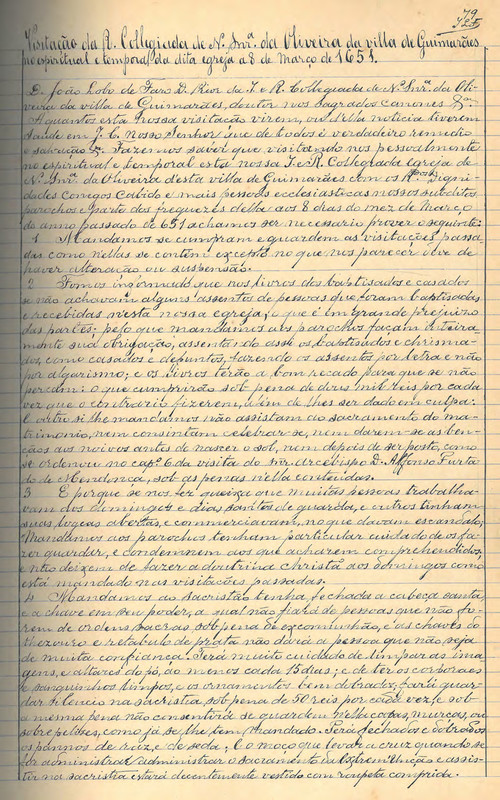 79
Visitação da R. Collegiada de Nª Snrª da Oliveira da villa de Guimarães
no espiritual e temporal da dita egreja a 8 de março de 1651.
D. João Lobo de Faro D. Prior da I. e R. Collegiada de Nª Snrª da Oli-
veira da villa de Guimarães, doutor nos sagrados canones &ª
A quantos esta nossa visitação virem, ou della noticia tiverem
saude em J. C. nosso Senhor que de todos é verdadeiro remedio
e salvação &ª. Fazemos saber que visitando nos pessoalmente
no espiritual e temporal esta nossa I. e R. Collegiada egreja de
Nª Snrª da Oliveira d'esta villa de Guimarães com os Rdos Digni-
dades conegos Cabido e mais pessoas ecclesiasticas nossos subditos
parochos e parte dos freguezes della aos 8 dias do mez de Março
do anno passado de 651 achamos ser necessario prover o seguinte:
1 Mandamos se cumpram e guardem as visitações passa-
das como nellas se contém excepto no que nos parecer
haver alteração ou suspensão.
2 Fomos informado que nos livros dos baptisados e casados
se não achavam alguns assentos de pessoas que foram baptisadas
e recebidas nesta nossa egreja, o que é em grande prejuizo
das partes: pelo que mandamos aos parochos façam inteira-
mente sua obrigação, assentando assi os baptisados e chrisma-
dos, como casados e defuntos, fazendo os assentos por letra e não
por algarismo; e os livros terão a bom recado para que se não
percam: o que cumprirão sob pena de dous mil reis por cada
vez que o contrario fizerem, alem de lhes ser dado em culpa:
E outro si lhe mandamos não assistam ao sacramento do ma-
trimonio, nem consintam celebrar-se, nem darem-se as ben-
çãos aos noivos antes de nascer o sol, nem depois de ser posto, como
se ordenou no capº 6 da visita do snr. arcebispo D. Affonso Furta-
do de Mendonça, sob as penas nella conteudas.
3 E porque se nos fez queixa que muitas pessoas trabalha-
vam dos domingos e dias santos de guarda, e outros tinham
suas logeas abertas, e commerciavam, no que davam escandalo;
Mandamos aos parochos tenham particular cuidado de os fa-
zer guardar, e condemnem aos que acharem comprehendidos,
e não deixem de fazer a doutrina christã aos domingos como
está mandado nas visitações passadas.
4 Mandamos ao sacristão tenha fechados a cabeça santa,
e a chave em seu poder, a qual não fiará de pessoas que não fo-
rem de ordens sacras, sob pena de excomunhão, e as chaves do
thezouro e retabulo de prata não dará a pessoa que não seja
de muita confiança. Terá muito cuidado de limpar as ima-
gens, e altares do pó, ao menos cada 15 dias; e de ter os corporaes
e sanguinhos limpos, e os ornamentos bem dobrados, fará guar-
dar silencio na sacristia sob pena de 50 reis por cada vez, e sob
a mesma pena não consentirá se guardem nella cotas, murças, ou
sobrepelizes, como já se lhe tem mandado. Terá fechados e dobrados
os pannos de raz, e de seda; e o moço que levar a cruz quando se
for administrar administrar o sacramento da Extrema Unção e assis-
tir na sacristia estará decentemente vestido com roupeta comprida.